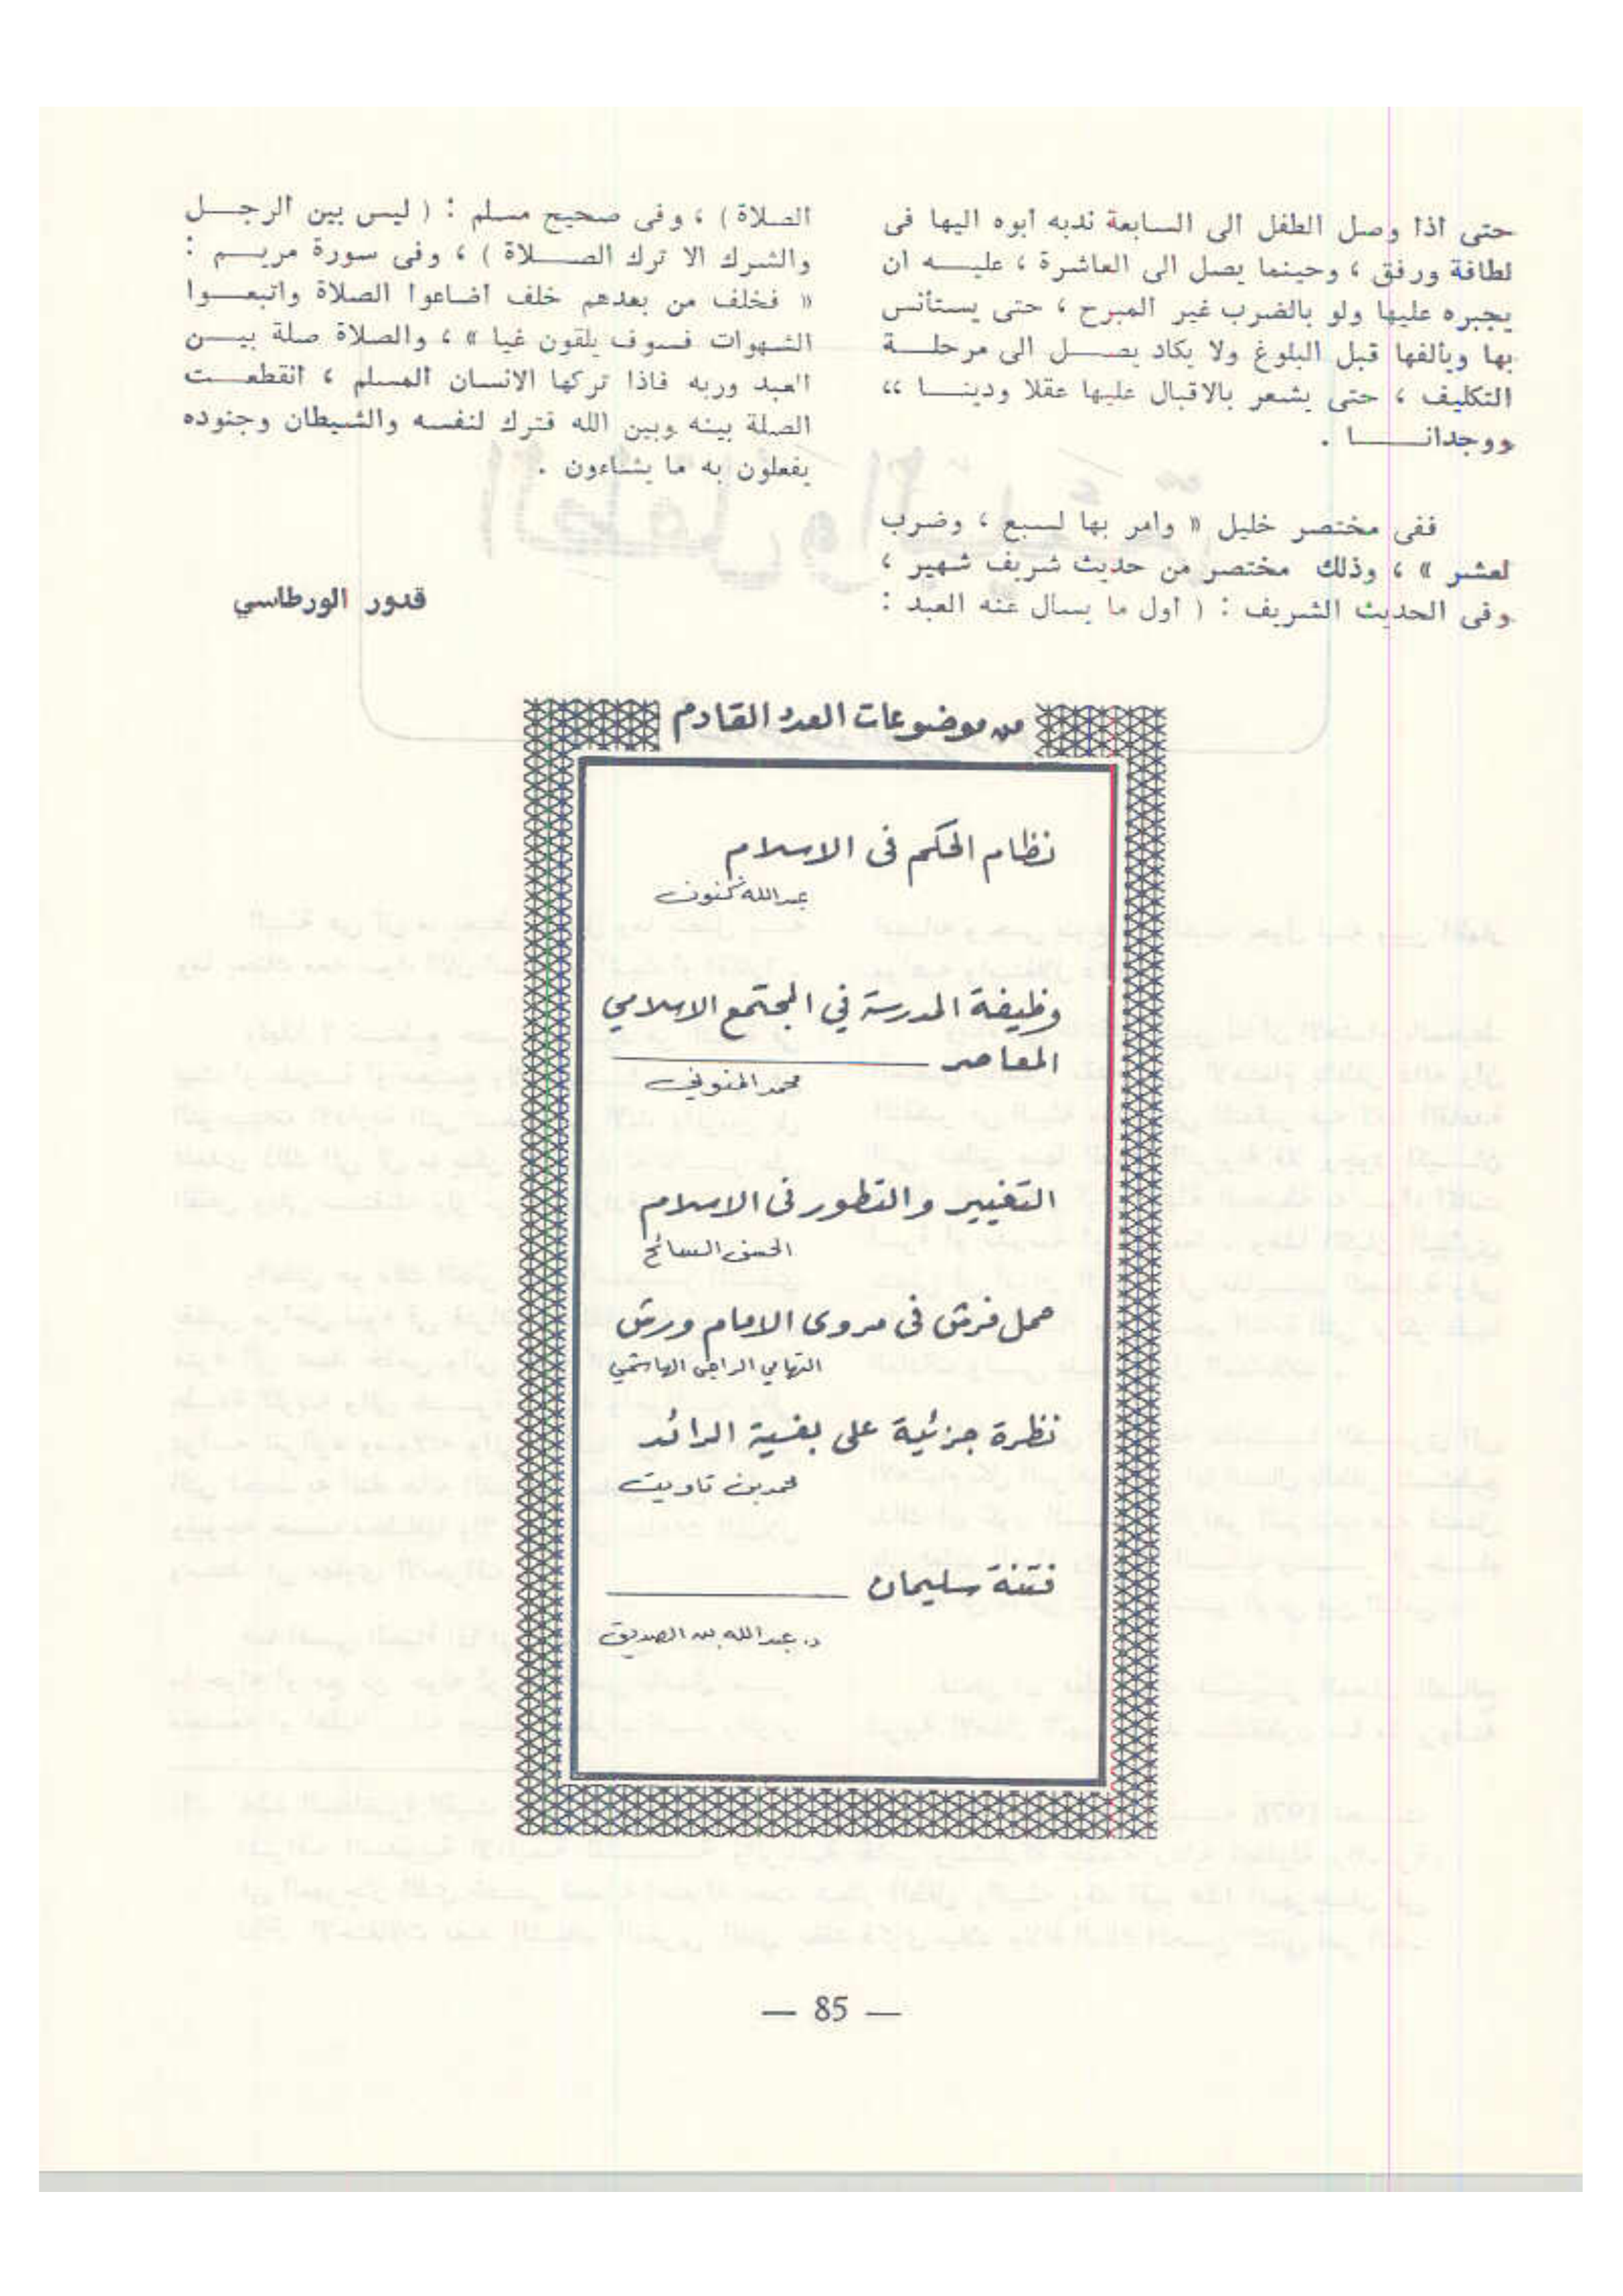 حتى اذا وصل الطفل الى السابعة ندبه ابوه اليها فى
لطافة ورفق ، وحينما يصل الى العاشرة ، عليه ان
يجبره عليها ولو بالضرب غير المبرح ، حتى يستأنس
بها ويألفها قبل البلوغ ولا يكاد يصل الى مرحلة
التكليف ، حتى يشعر بالاقبال عليها عقلا ودينا ،،
ووجدانا .
ففى مختصر خليل « وامر بها لسبع ، وضرب
لعشر » ، وذلك مختصر من حديث شريف شهير ،
وفى الحديث الشريف : ( اول ما يسال عنه العبد :
الصلاة ) ، وفى صحيح مسلم : ( ليس بين الرجل
والشرك الا ترك الصلاة ) ، وفى سورة مريم :
« فخلف من بعدهم خلف اضاعوا الصلاة واتبعوا
الشهوات فسوف يلقون غيا » ، والصلاة صلة بين
العبد وربه فاذا تركها الانسان المسلم ، انقطعت
الصلة بينه وبين الله فترك لنفسه والشيطان وجنوده
يفعلون به ما يشاءون .
قدور الورطاسي
من موضوعات العدد القادم
نظام الحكم فى الاسلام
عبد الله كنون
وظيفة المدرسة في المجتمع الاسلامي
المعاصر
محمد المنوني
التغيير والتطور فى الاسلام
الحسن السائح
حمل فرش فى مروى الامام ورش
التهامي الراجى الهاشمي
نظرة جزئية على بغية الرائد
محمد بن تاويت
فتنة سليمان
د. عبد الله بن الصديق
— 85 —